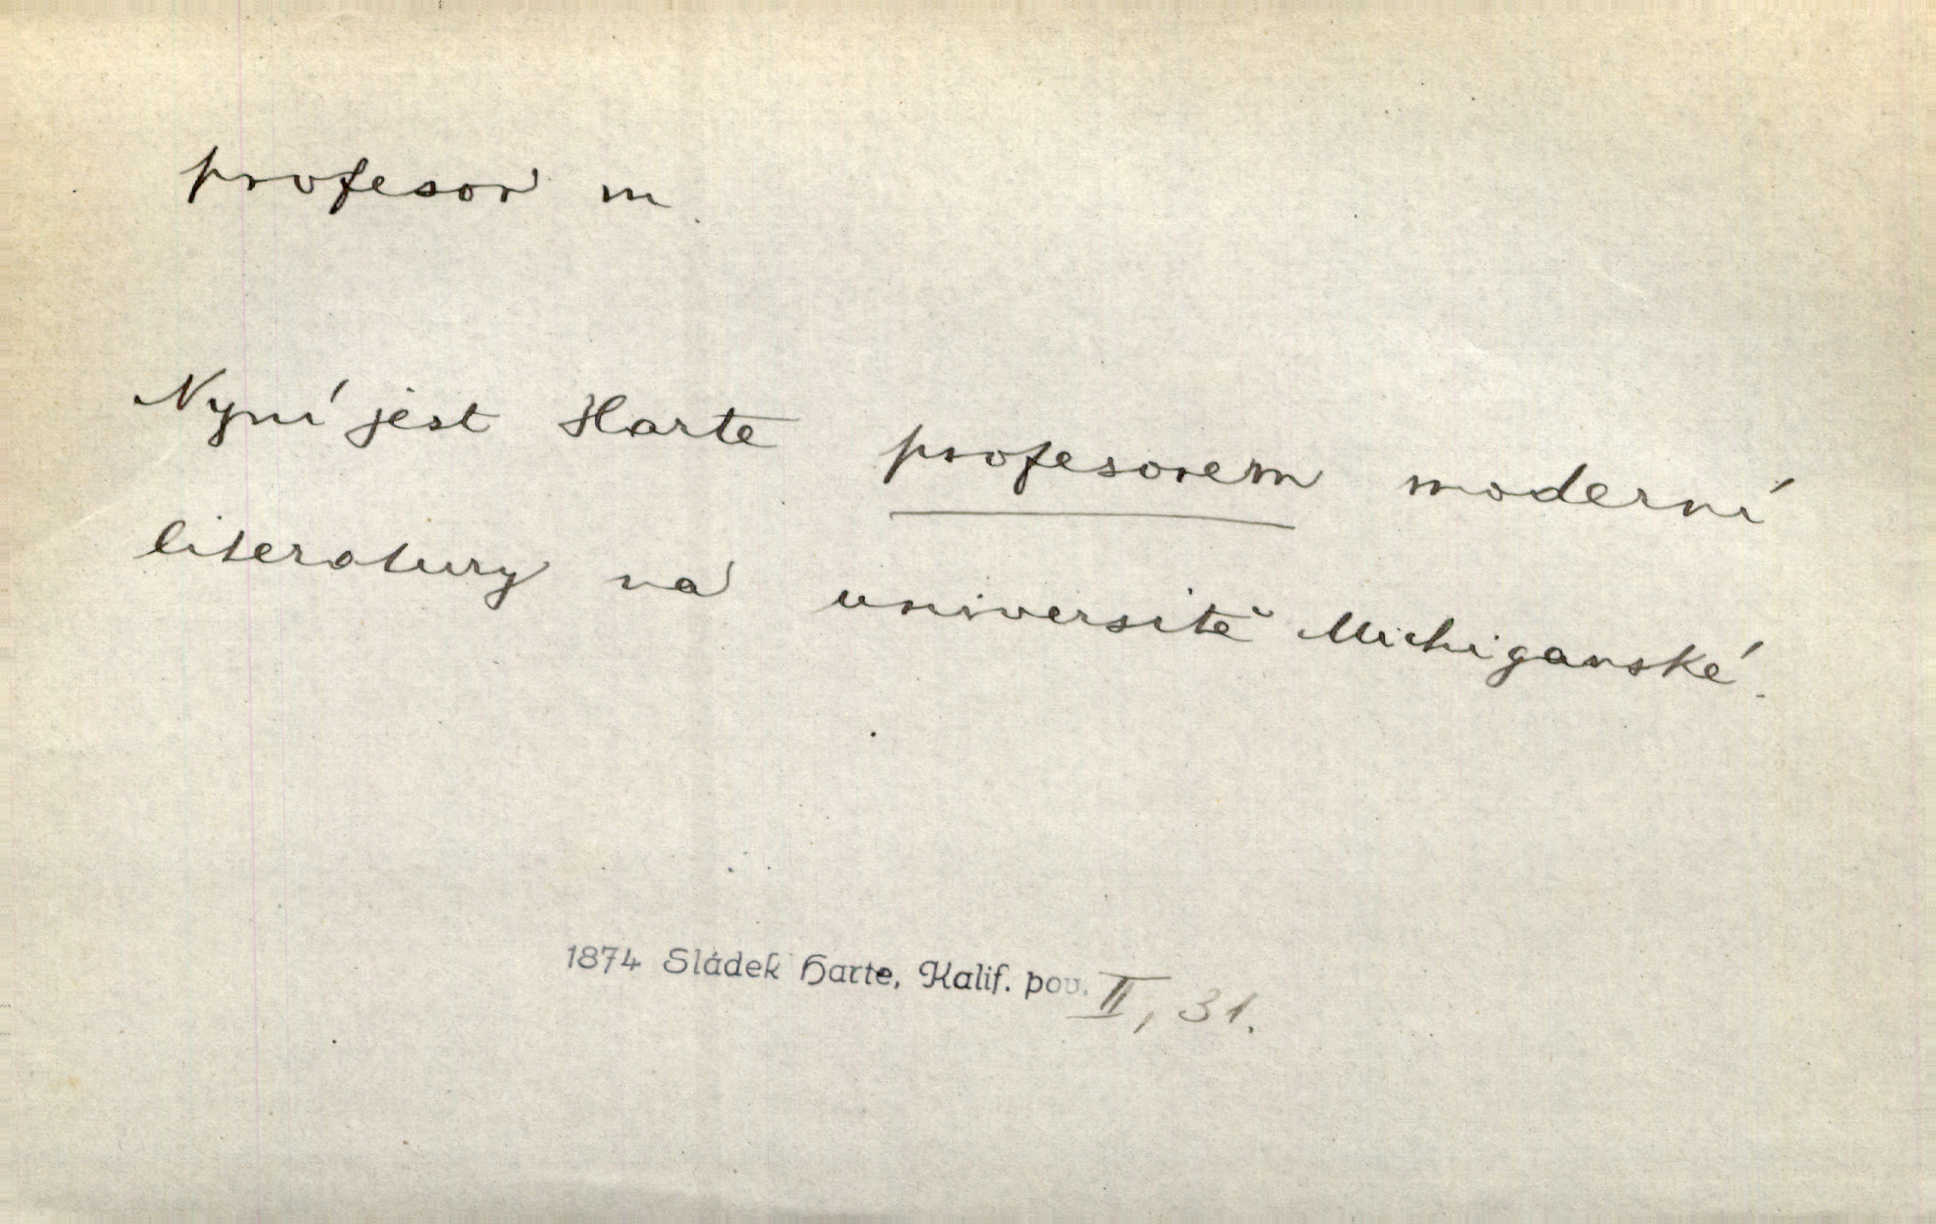 profesor m.
Nyní jest Harte profesorem moderní
literatury na universitě Michiganské.
1874 Sládek Harte, Kalif. pov. II, 31.